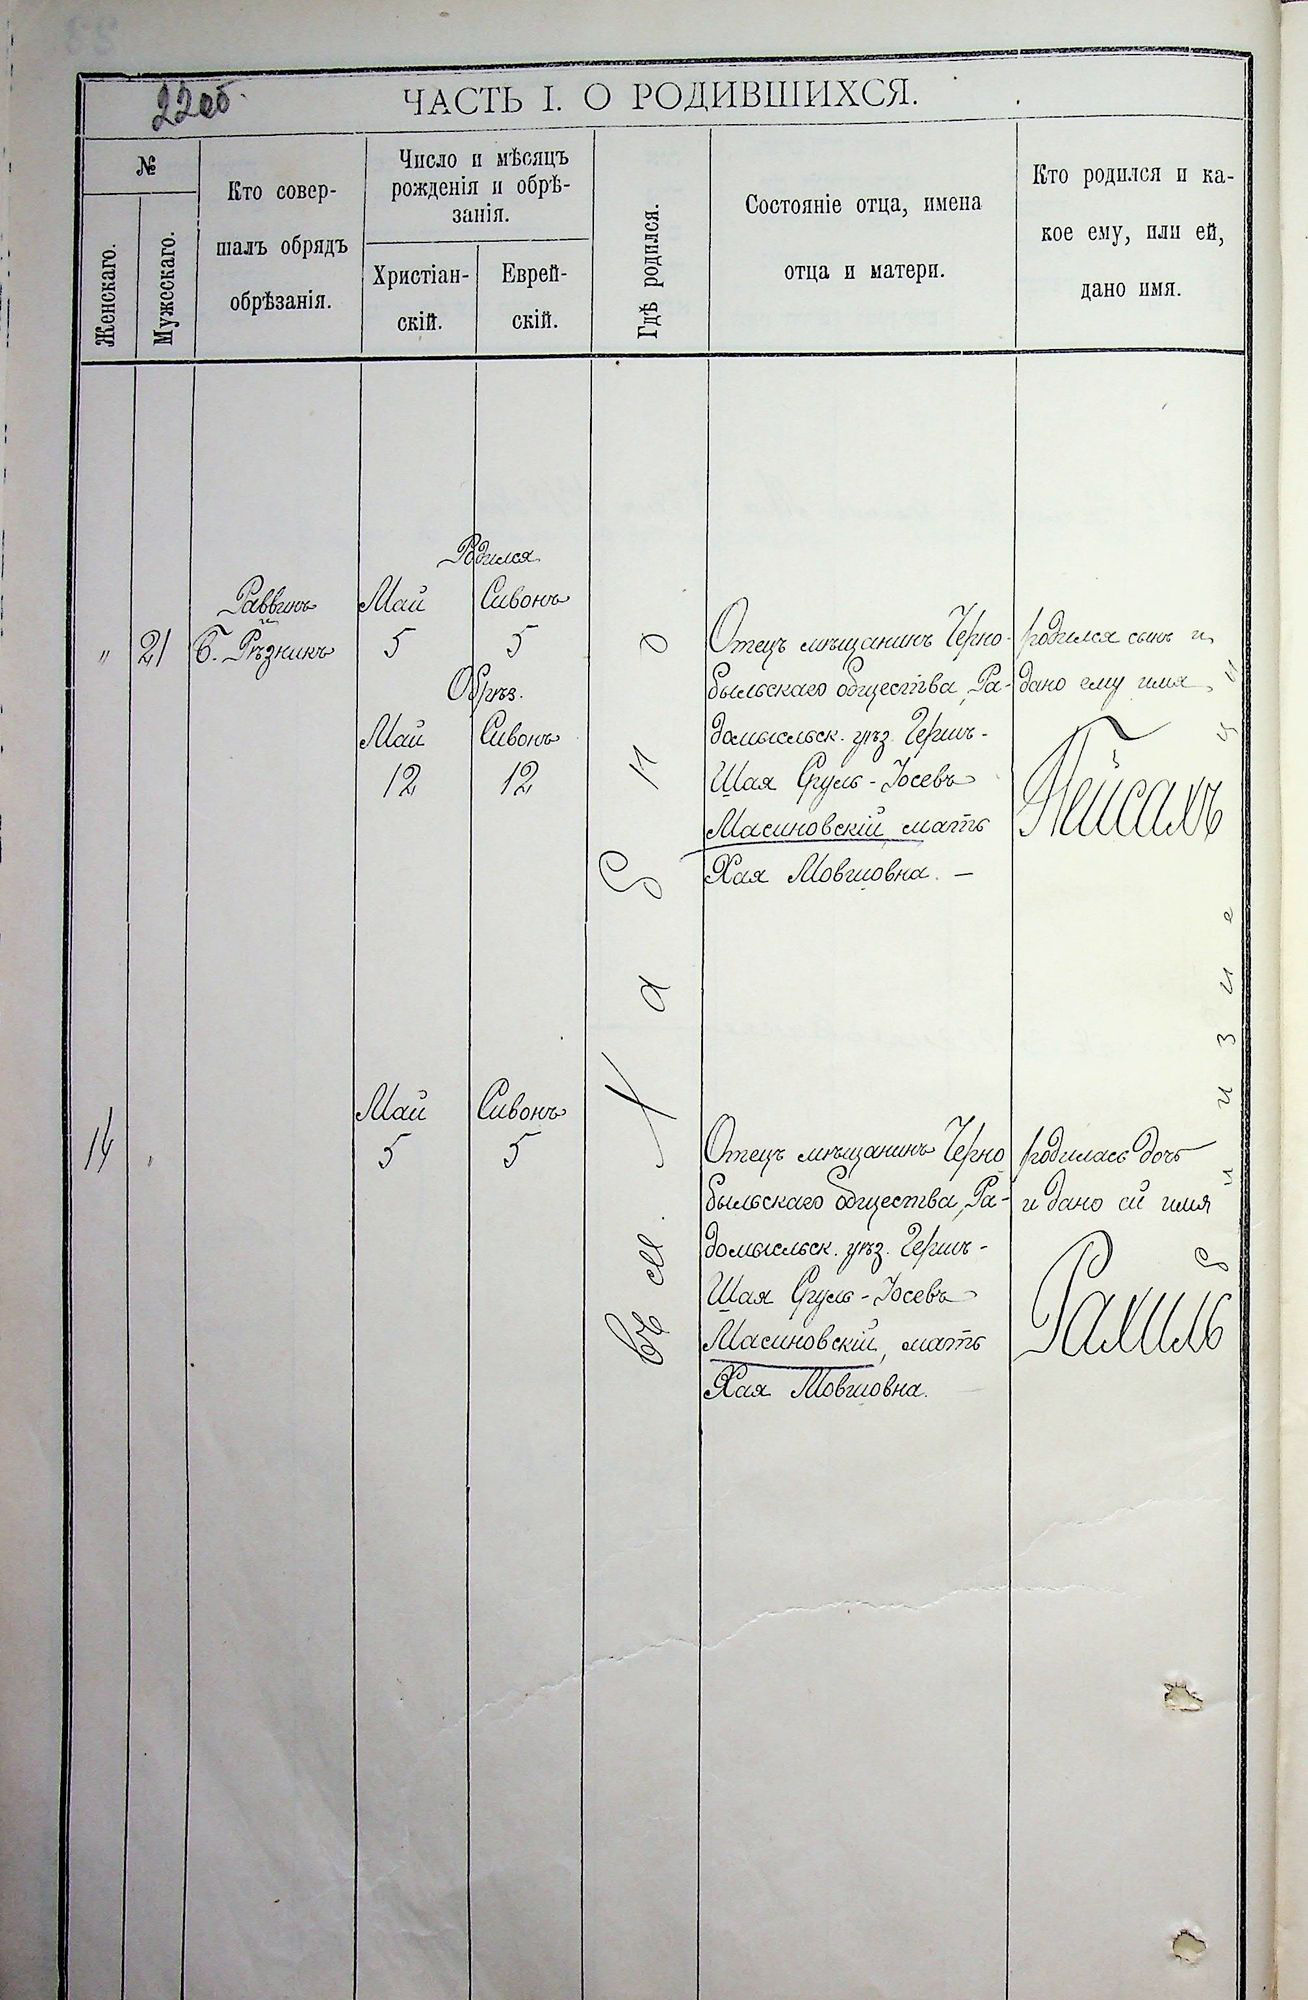 22об.
ЧАСТЬ I. О РОДИВШИХСЯ.
№
Женскаго.
Мужескаго.
Кто совер-
шалъ обрядъ
обрѣзанія.
Число и мѣсяцъ
рожденія и обрѣ-
занія.
Христіан-
скій.
Еврей-
скій.
Гдѣ родился.
Состояніе отца, имена
отца и матери.
Кто родился и ка-
кое ему, или ей,
дано имя.
Родился
Раввинъ
и
Б. Рѣзникъ
"
21
Май
5
Сивонъ
5
Обрѣз.
Май
12
Сивонъ
12
Въ м.
Отецъ мѣщанинъ Черно-
быльскаго общества, Ра-
домысльск. уѣз. Герш-
Шая Сруль-Іосевъ
Масиновскій, мать
Хая Мовшовна. —
родился сынъ и
дано ему имя
Пейсахъ
14
"
Май
5
Сивонъ
5
Отецъ мѣщанинъ Черно
быльскаго общества, Ра-
домысльск. уѣз. Герш-
Шая Сруль-Іосевъ
Масиновскій, мать
Хая Мовшовна.
родилась дочь
и дано ей имя
Рахиль